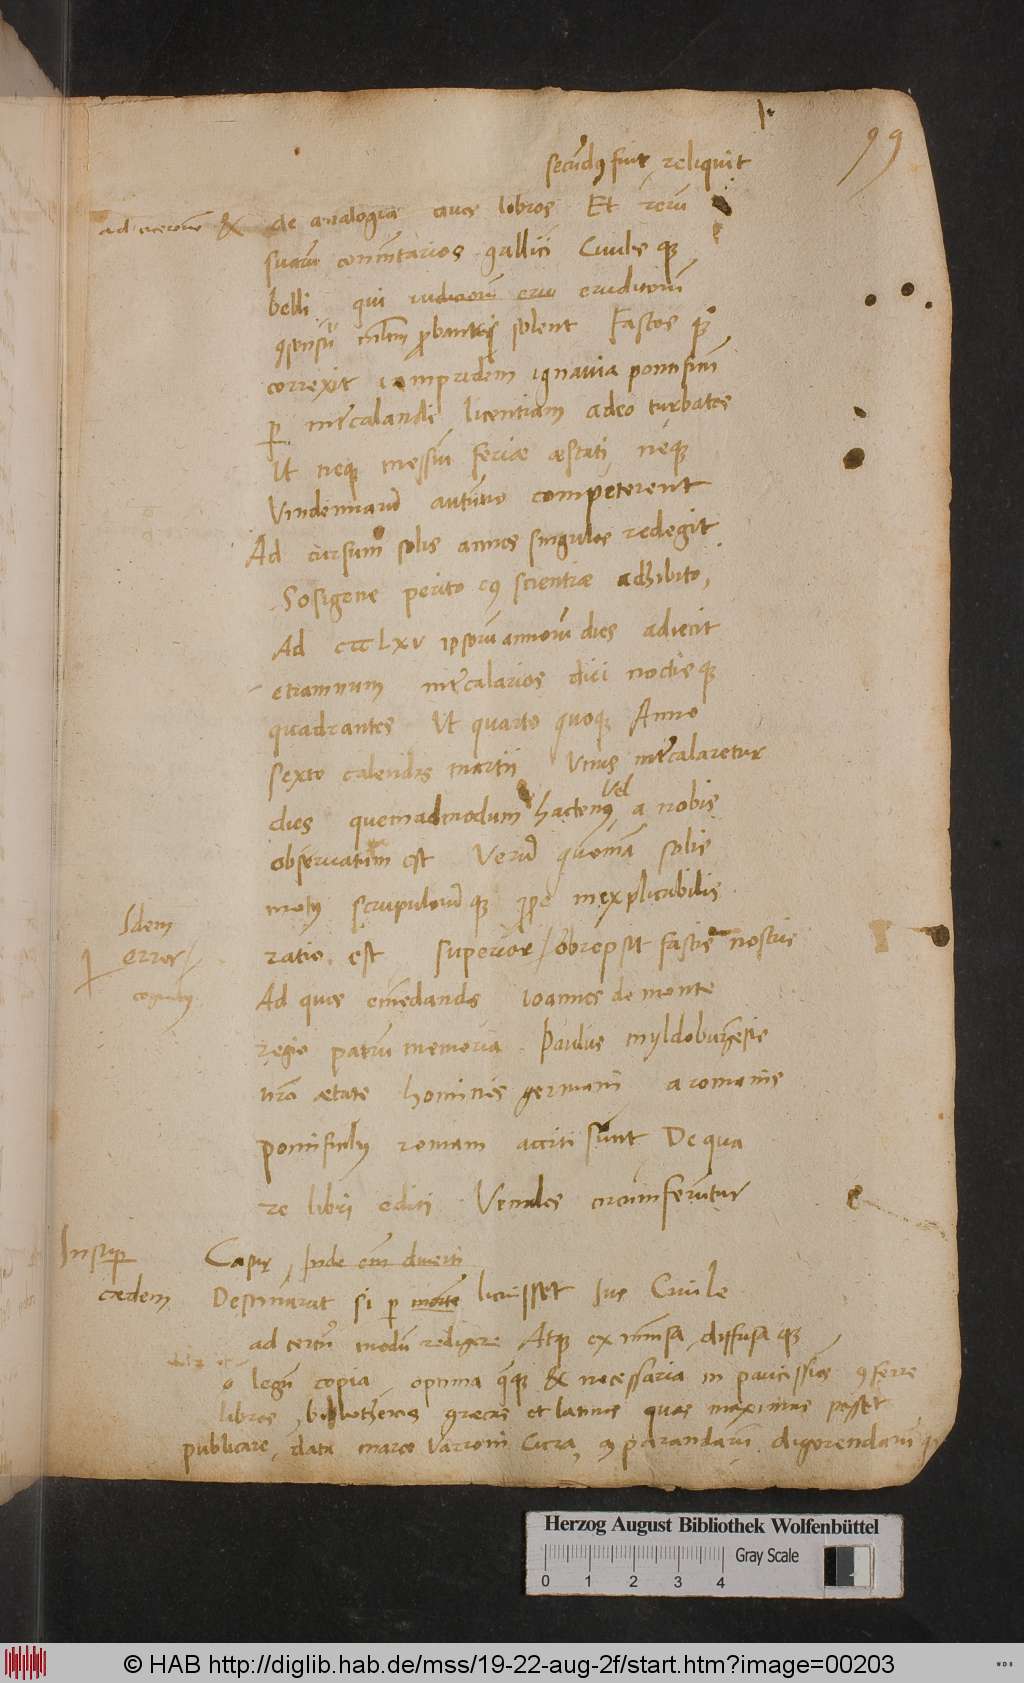 99
secūdꝰ fuit, reliquit
ad ciceronē & de analogia duos libros Et rerū
suarū commentarios gallici Civilis qꝫ
belli qui iudiciorū eruditorū
ꝯsensu multum probantis solent Fastos qꝫ
correxit iampridem ignavia pontificum
ꝑ intercalandi licentiam adeo turbatos
Ut neqꝫ messiū feriae aestati neqꝫ
Vindemiarū autūno competerent
Ad cursum solis annos singulos redegit
Sosigene perito eiꝰ scientiae adhibito,
Ad CCCLXV ipsorū annorū dies adiecit
etiamnum intercalarios diei noctis qꝫ
quadrantes Ut quarto quoqꝫ Anno
sexto calendis martii Unus intercalaretur
dies quemadmodum hactenꝰ Vel a nobis
observatum est Verū quoniā solis
motꝰ scrupulorū qꝫ prope inexplicabilis
Idem
error
ratio est superior / obrepsit fastis nostris
Ad quos emēdandos ioannes de monte
regio patrū memoria Paulus myldoburgensis
nr̄a aetate homines germani a romanis
pontificibꝰ romam acciti sunt De qua
re libri editi Venales circumferūtur
Insuper
caedem
Capue, Inde em̄ diverti
Destinarat si ꝑ morte licuisset Ius Civile
ad certū modū redigere Atqꝫ ex immēsa, diffusa qꝫ
legū copia, optima qꝫqꝫ & necessaria in paucissimos ꝯferre
libros, bibliothecas graecas et latinas quas maximas posset
publicare, data marco Varroni Cura, ꝯparandarū, digerendarū qꝫ
Herzog August Bibliothek Wolfenbüttel
Gray Scale
0 1 2 3 4
© HAB http://diglib.hab.de/mss/19-22-aug-2f/start.htm?image=00203